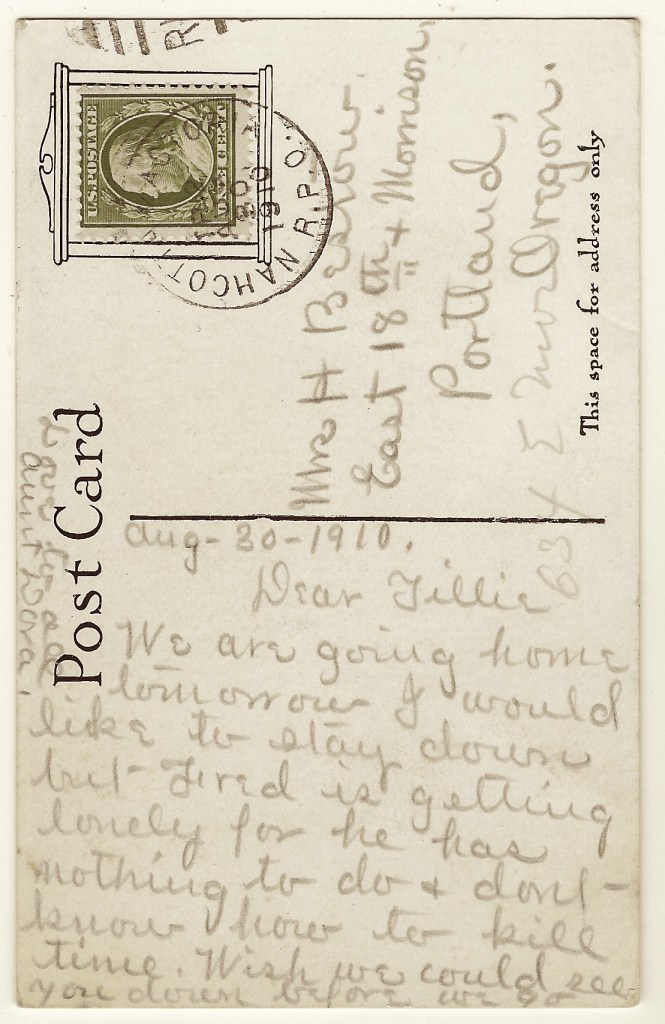 Post Card
This space for address only
U.S. POSTAGE
NAHCOTTA R.P.O.
AUG
30
1910
Mrs H
East 18th + Morrison,
Portland,
Oregon.
634 E Mor
Aug-30-1910.
Dear Tillie
We are going home
tomorrow I would
like to stay down
but Fred is getting
lonely for he has
nothing to do + dont
know how to kill
time. Wish we could see
you down before we go
Love to all
Aunt Dora.